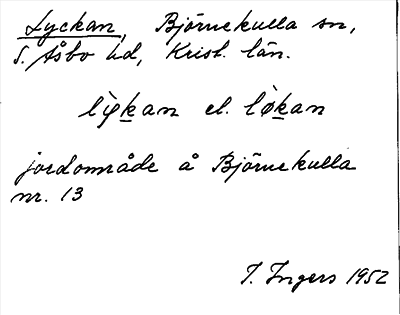 Lyckan, Björnekulla sn,
S. Åsbo hd, Krist. län.
lykan el. løkan
jordområde å Björnekulla
nr. 13
I. Ingers 1952